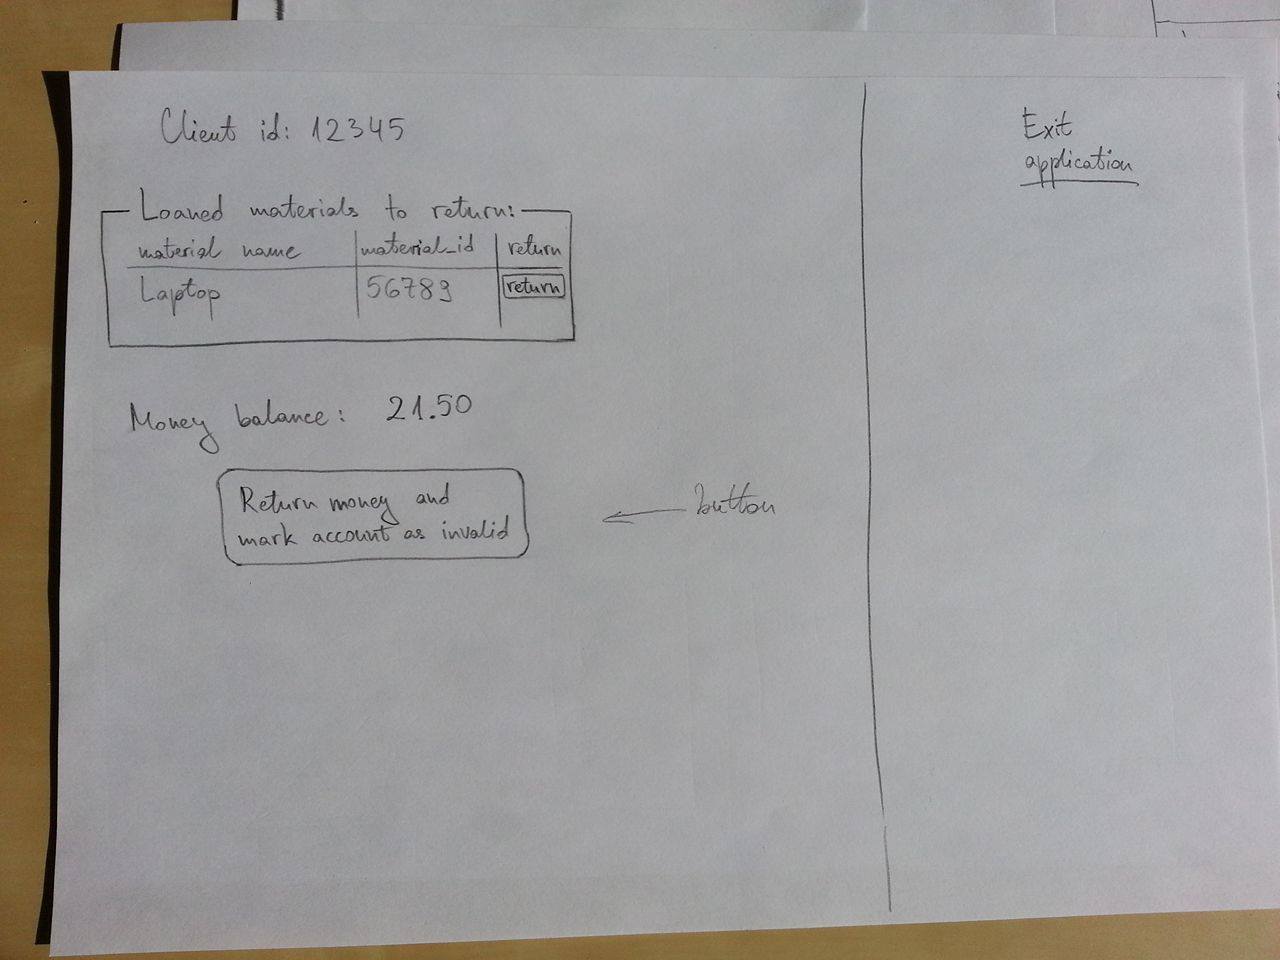 Client id: 12345
Exit
application
Loaned materials to return:
material name material_id return
Laptop 56789 return
Money balance: 21.50
Return money and
mark account as invalid
button